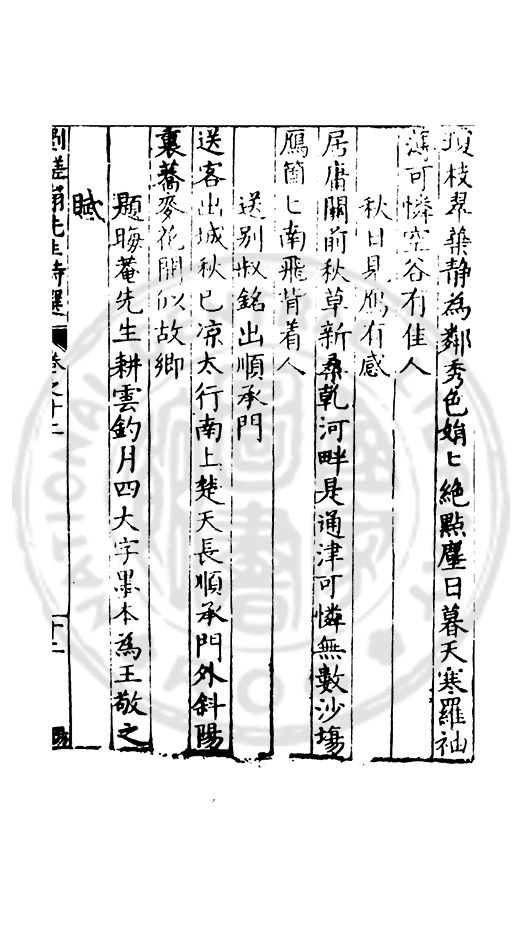 枝翠羽靜為鄰秀色娟匕絶點塵日暮天寒羅袖
薄可憐空谷有佳人
秋日見鴈有感
居庸關前秋草新桑乾河畔是通津可憐無數沙塲
鴈箇匕南飛背着人
送别叔銘出順承門
送客出城秋已凉太行南上楚天長順承門外斜陽
裏蕎麥花開似故鄉
題晦菴先生耕雲釣月四大字墨本為王敬之
賦
先生詩選 卷之十二 十二